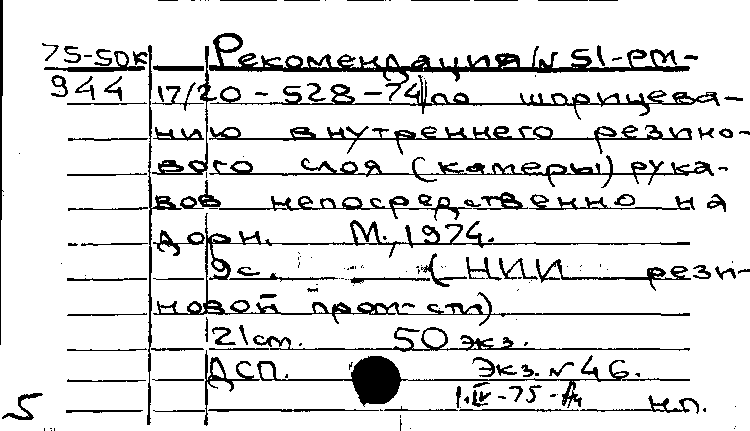 75-50к Рекомендация/N 51-РМ-
944 17/20-528-74/по шприцева-
нию внутреннего резино-
вого слоя (камеры) рука-
вов непосредственно на
дорн. М., 1974.
9с. (НИИ рези-
новой пром-сти).
21см. 50 экз.
ДСП. Экз. N 46.
1.IV-75-
5 н.п.